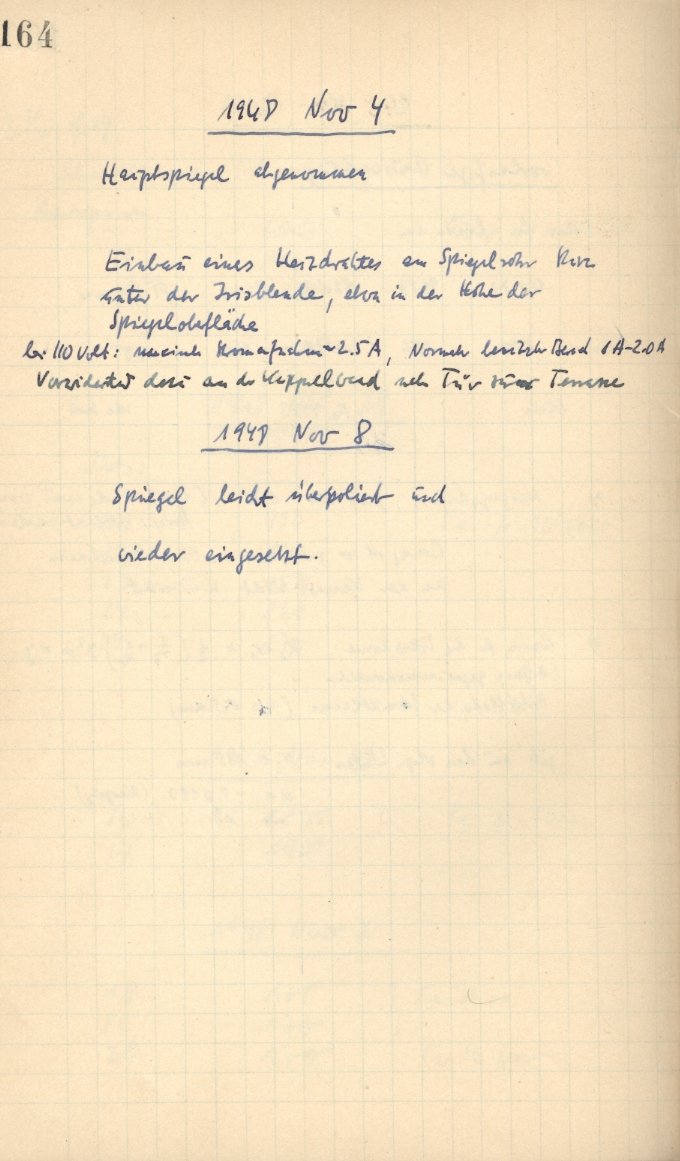 164
1948 Nov 4
Hauptspiegel abgenommen
Einbau eines Heizdrahtes am Spiegelrohr kurz
unter der Irisblende, etwa in der Höhe der
Spiegeloberfläche
bei 110 Volt: ~ 2.5 A, Normaler 1 A - 2.0 A
Vorwiderstand dazu an der Kuppelwand neben Tür zur Terrasse
1948 Nov 8
Spiegel leicht überpoliert und
wieder eingesetzt.